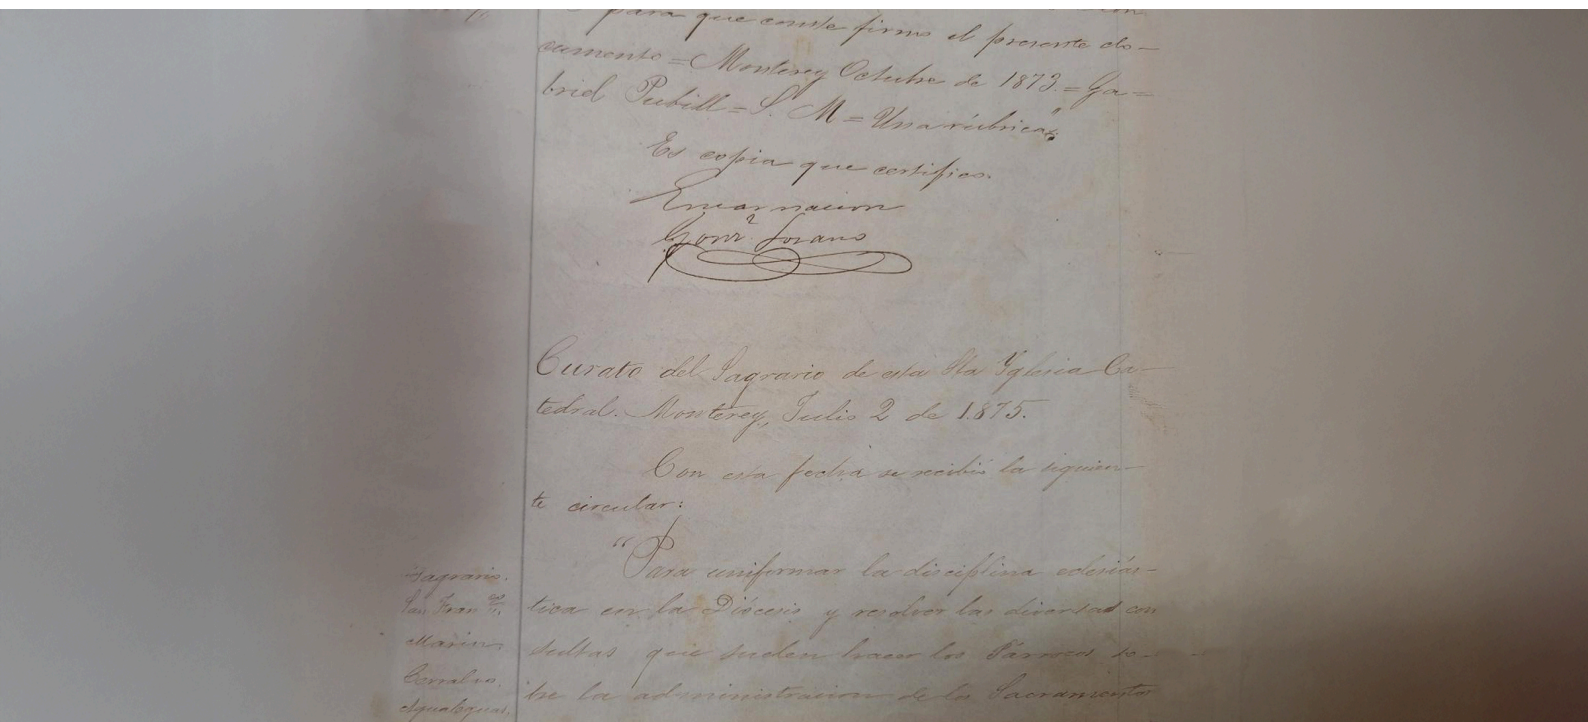 para que conste firmo el presente do-
cumento = Monterey Octubre de 1873. = Ga=
briel Pubill = S. M = Una rúbrica"
Es copia que certifico.
Encarnacion
Gonz. Lozano
Curato del Sagrario de esta Sta Yglesia Ca-
tedral. Monterey, Julio 2 de 1.875.
Con esta fecha se recibió la siguien-
te circular:
"Para uniformar la disciplina eclesiás-
tica en la Diócesis y resolver las diversas con
sultas que suelen hacer los Párrocos so-
bre la administracion de los Sacramentos
Sagrario.
San Fran co
Marin
Cerralvo.
Agualeguas.